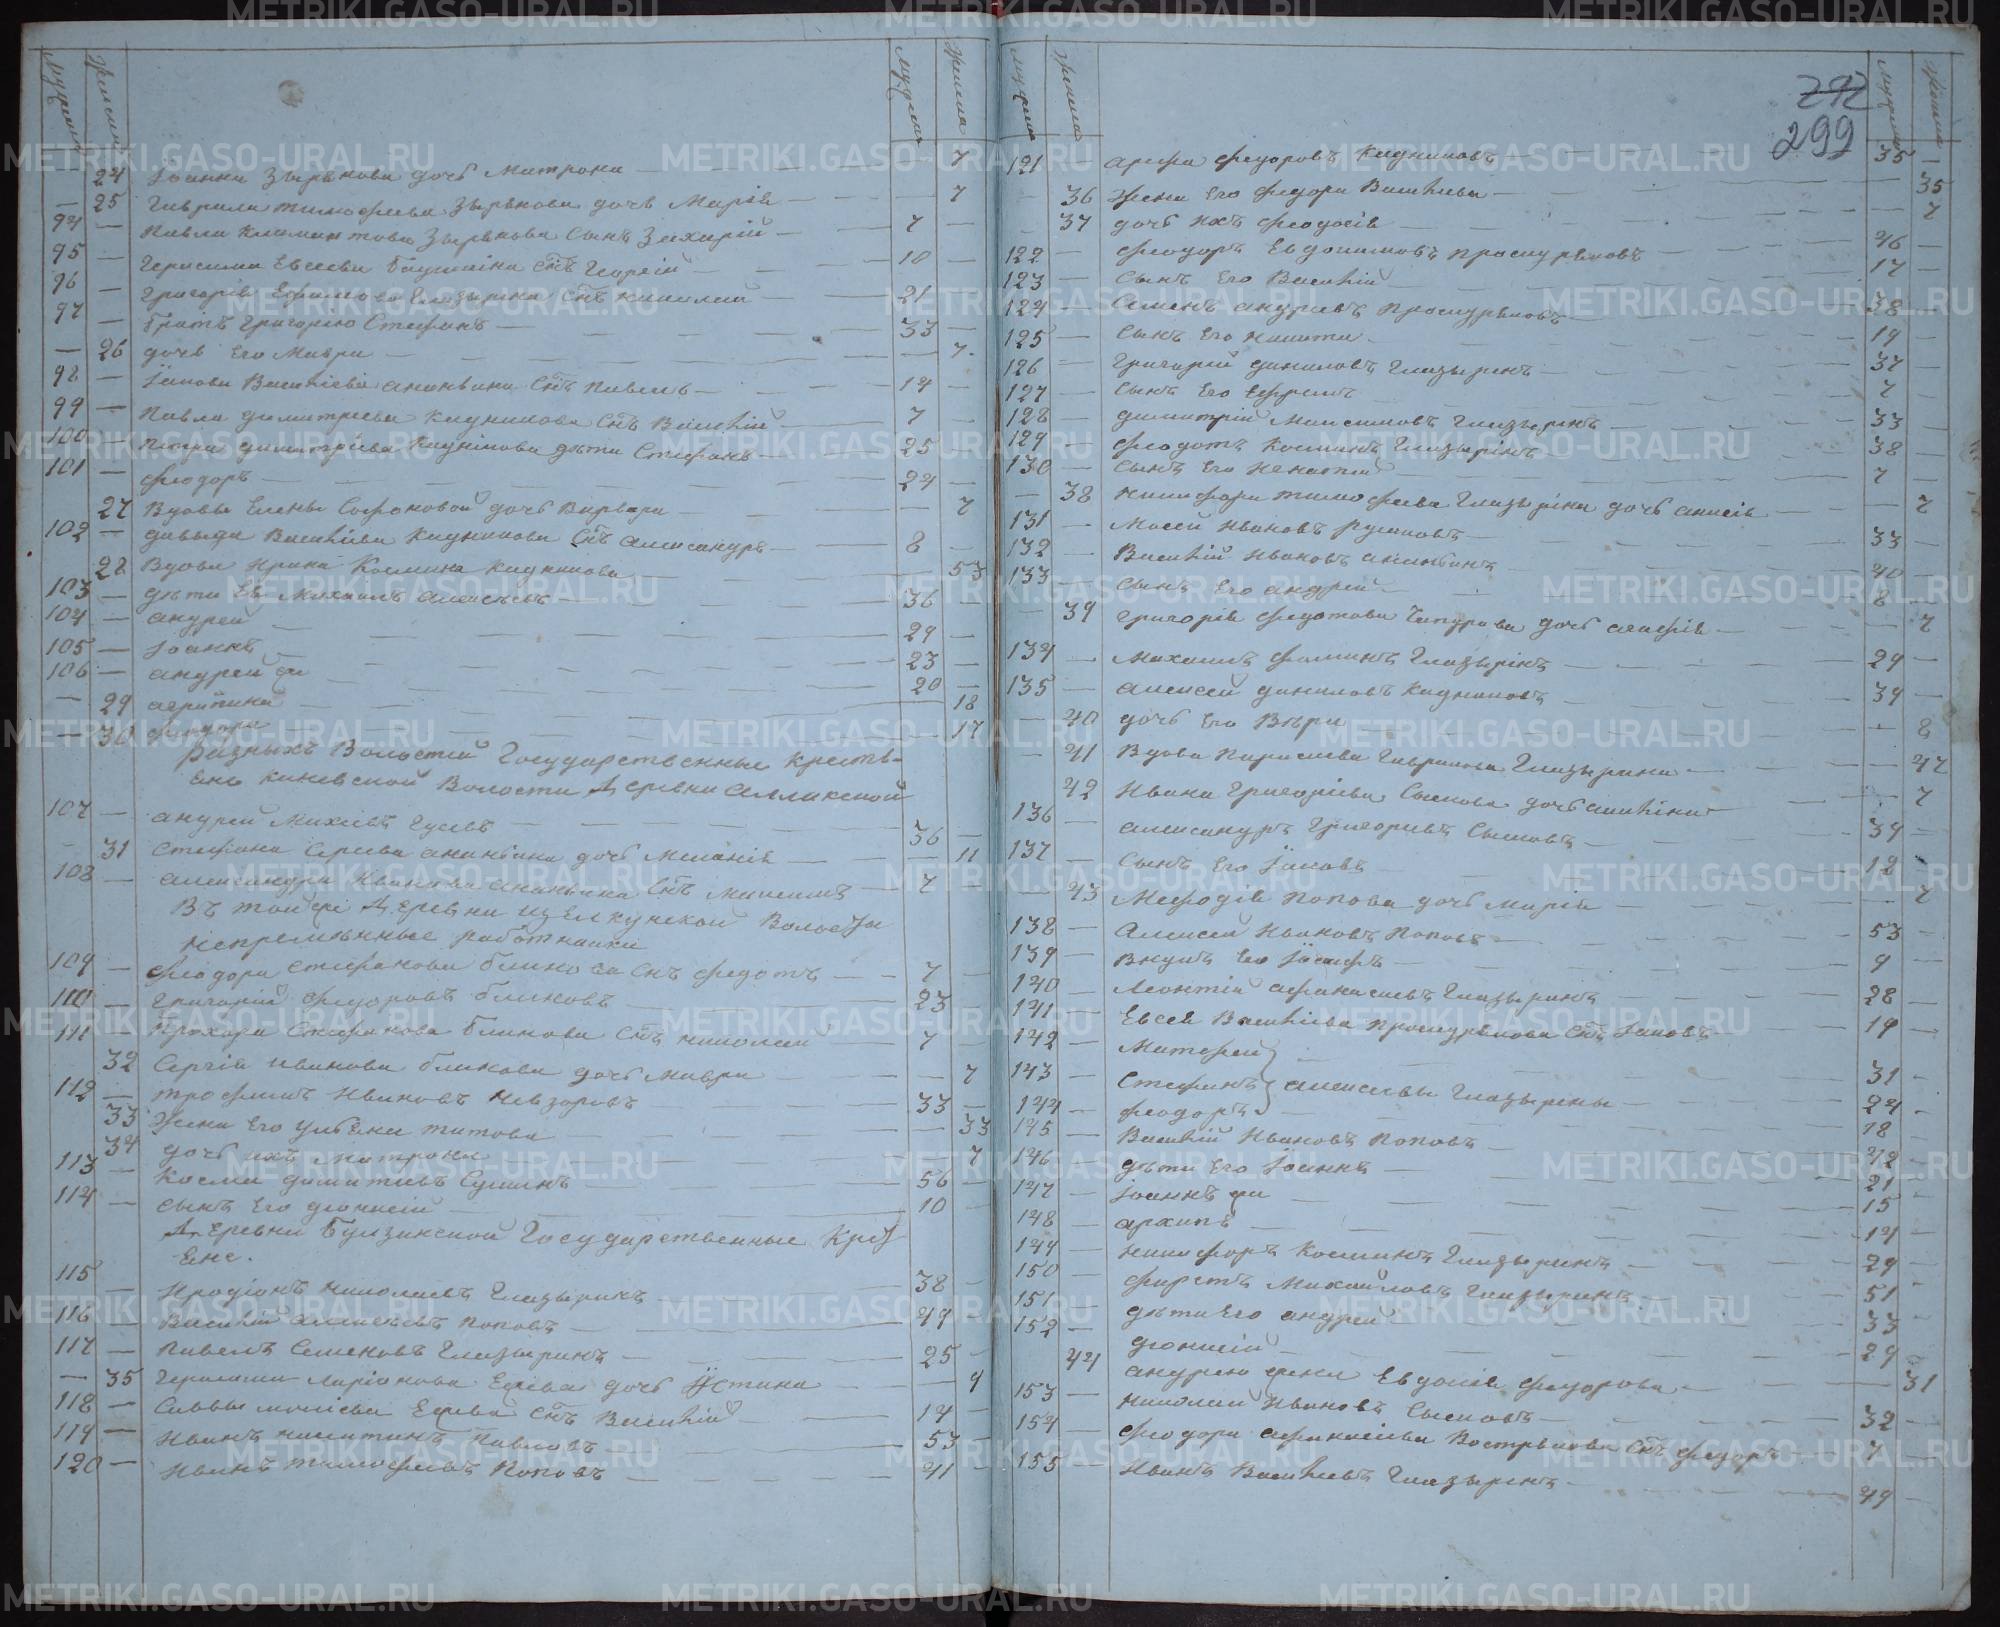 мужеска женска мужеска женска
24 Іоанна Зырянова дочь Матрона 7
25 Гаврила Тимофеева Зырянова дочь Марія 7
94 Павла Климентова Зырянова сынъ Захарій 7
95 Герасима Евсеева снъ Георгій 10
96 Григорія Ефимова Глазырина снъ Николай 21
97 Братъ Григорію Стефанъ 33
26 дочь Его Мавра 7
98 Іакова Василіева Ананьина снъ Павелъ 14
99 Павла Димитріева Кадникова снъ Василій 7
100 Петра Димитріева Кадникова дѣти Стефанъ 25
101 Феодоръ 24
27 Вдовы Елены Софоновой дочь Варвара 7
102 Давыда Василіева Кадникова снъ Александръ 8
28 Вдова Ирина Космина Кадникова 53
103 дѣти Ея Михаилъ Алексѣевъ 36
104 Андрей 29
105 Іоаннъ 23
106 Андрей же 20
29 Агрипина 18
30 Феодора 17
Разныхъ Волостей Государственные Крестья-
не Каневской Волости Деревни Аллакской
107 Андрей Михеевъ Гусевъ 36
31 Стефана Сергеева Ананьина дочь Меланія 11
108 Александра Иванова Ананьина снъ Максимъ 7
Въ той же Деревни Щелкунской Волости
Непременные работники
109 Феодора Стефанова Блинова снъ Федотъ 7
110 Григорій Федоровъ Блиновъ 23
111 Прохора Стефанова Блинова снъ Николай 7
32 Сергія Иванова Блинова дочь Мавра 7
112 Трофимъ Ивановъ Невзоровъ 33
33 Жена Его Ульяна Титова 33
34 дочь ихъ Матрона 7
113 Косма Домитіевъ 56
114 сынъ Его Діонисій 10
Деревни Булзинской Государственные Крес
яне.
115 Иродіонъ Николаевъ Глазыринъ 38
116 Василій Алексѣевъ Поповъ 49
117 Павелъ Семеновъ Глазыринъ 25
35 Герасима Ларіонова дочь Устина 9
118 Саввы Моисеева снъ Василій 14
119 Иванъ Никитинъ Павловъ 53
120 Иванъ Тимофеевъ Поповъ 41
мужеска женска мужеска женска
292
299
121 Арефа Федоровъ Кадниковъ 35
36 Жена Его Федора Васильева 35
37 дочь ихъ Феодосія 7
122 Феодоръ Евдокимовъ Проскуряковъ 46
123 Сынъ Его Василій 17
124 Семенъ Андреевъ Проскуряковъ 38
125 Сынъ Его Никита 19
126 Григорій Даниловъ Глазыринъ 37
127 Сынъ Его Ефремъ 7
128 Димитрій Максимовъ Глазыринъ 33
129 Феодотъ Косминъ Глазыринъ 38
130 Сынъ Его 7
38 Никифора Тимофеева Глазырина дочь Анисія 7
131 Мосей Ивановъ Русиновъ 33
132 Василій Ивановъ Ананьинъ 40
133 Сынъ Его Андрей 8
39 Григорія Федотова дочь Агафія 7
134 Михаилъ Фоминъ Глазыринъ 29
135 Алексей Даниловъ Кадниковъ 39
40 дочь Его Вѣра 8
41 Вдова Параскева Гаврилова Глазырина 47
42 Ивана Григоріева Сыскова дочь 7
136 Александръ Григорьевъ Сысковъ 39
137 Сынъ Его Іаковъ 12
43 Мефодія Попова дочь Марія 7
138 Алексей Ивановъ Поповъ 53
139 Внукъ Его Іосифъ 9
140 Леонтій Афанасьевъ Глазыринъ 28
141 Евсея Василіева Проскурякова снъ Іаковъ 19
142 Матфей 31
143 Стефанъ Алексеевы Глазырины 24
144 Феодоръ 18
145 Василій Ивановъ Поповъ 42
146 дѣти Его Іоаннъ 21
147 Іоаннъ же 15
148 Архипъ 14
149 Никифоръ Косминъ Глазыринъ 29
150 Фирсъ Михайловъ Глазыринъ 51
151 дѣти Его Андрей 33
152 Діонисій 29
44 Андрею жена Евдокія Федорова 31
153 Николай Ивановъ Сысковъ 32
154 Феодора Афанасіева Вострякова снъ Федоръ 7
155 Иванъ Васильевъ Глазыринъ 49
METRIKI.GASO-URAL.RU